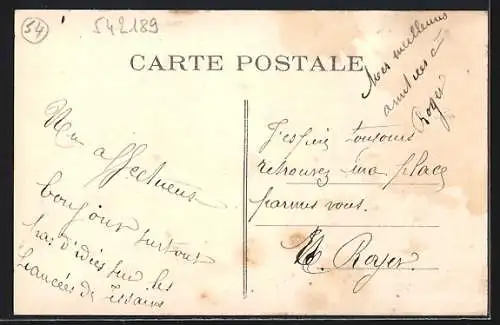 54
542189
CARTE POSTALE
Mes meilleures
amitiés à
Roger
Un affectueux
bonjour surtout
pas d'idées sur les
fiancées de
J'espère toujours
retrouver ma place
parmis vous.
Roger.